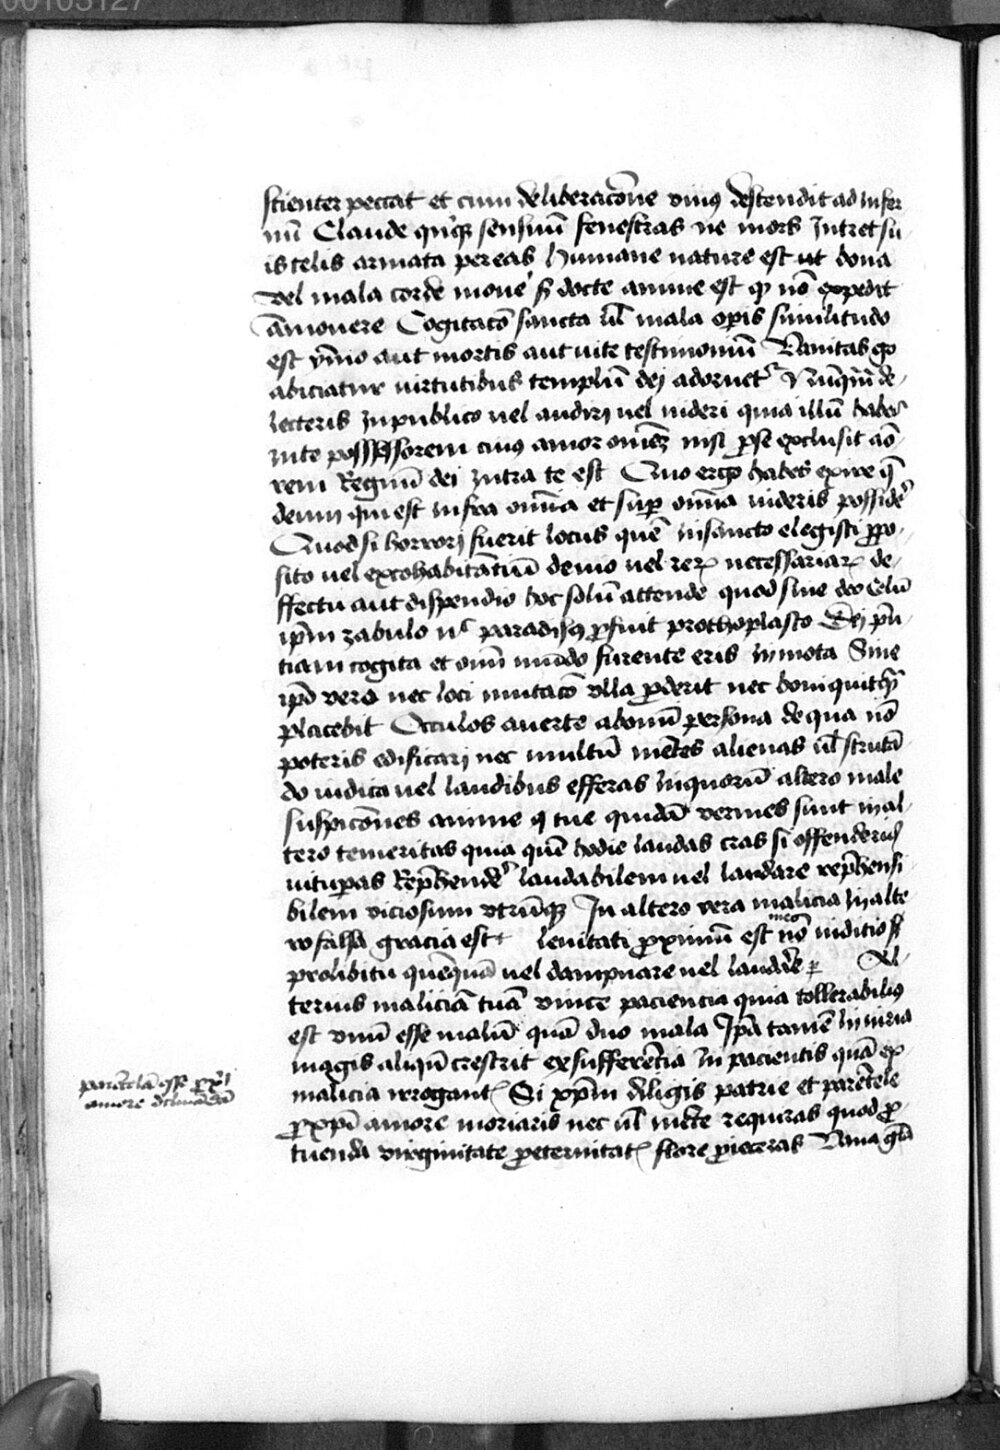 00103127
scienter peccat et cum deliberac̄one viuus descendit ad infer
nū Claude quīqꝫ sensuū fenestras ne mors Intret su
is telis armata pereas humane nature est ut bona
vel mala corde mouē s docte anime est qꝫ nō expedit
āmouere Cogitacō sancta ul̄ mala opis similitudo
est ymo aut mortis aut uite testimoniū Vanitas go
abiciatur uirtutibus templū dei adornet᷑ Nūqm̄ de
lecteris In publico uel audiri uel uideri quia illū habes
Inte possessorem cuius amor omēꝫ nisi pse exclusit aō
rem Regnū dei Intra te est Quo ergo habes exire q̄
deum qui est infra omīa et sup omīa uideris possidē
Quod si horrori fuerit locus quē insancto elegisti ppo
sito uel ex cohabitātiū denio uel reꝝ necessariaꝝ de
ffectu aut dispendio hoc solū attende quod sine deo celū
ipm zabulo nc paradisus pfuit prothoplasto Dei pn
tiam cogita et omī mūdo furente eris Inmota Sine
ipo vero nec loci mutacō vlla pderit nec boni quitqꝫ
placebit Occulos auerte ab omī persona de qua nō
poteris edificari nec multū mētes alienas ul̄ scrutā
do iudica uel laudibus efferas Inquorū altero male
suspicōnes anime q tue quidā vermes sunt inal
tero temeritas quia quē hodie laudas cras si offenderis
uitupas Rephendē laudabilem uel laudare rephensi
bilem viciosum vtrūqꝫ In altero vera malicia In alte
ro falsa gracia est leuitati proximū est nō iuditio s
meo
prohibitu quēquā uel dampnare uel laudare Al
terius maliciā tuā vince paciencia quia tollerabilius
est vnū esse malū quā duo mala Ipā tamē Iniuria
magis aliqn̄ crescit ex sufferētia In pacientis quā ex
malicia irrogant᷑ Si xpm diligis patrie et parētele
p xpi amore moriaris nec ul̄ mēte requiras quod p
tuenda virginitate peternitatꝭ flore pieceras Vana gla
parētela esse xpi
amore